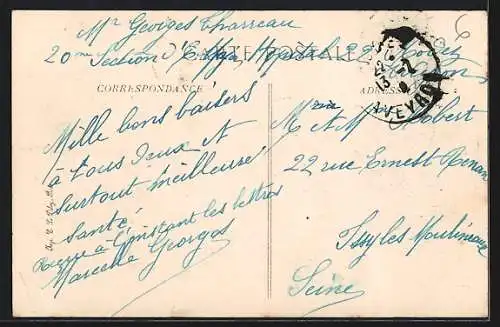 Mr Georges Charreau
20me Section
CARTE POSTALE
CORRESPONDANCE
ADRESSE
AVEYRON
Mille bons baisers
à tous deux et
surtout meilleure
santé
Reçu à l'instant les lettres
Marcelle Georges
M et Mme Robert
22 rue Ernest Renan
Issy les Moulineaux
Seine